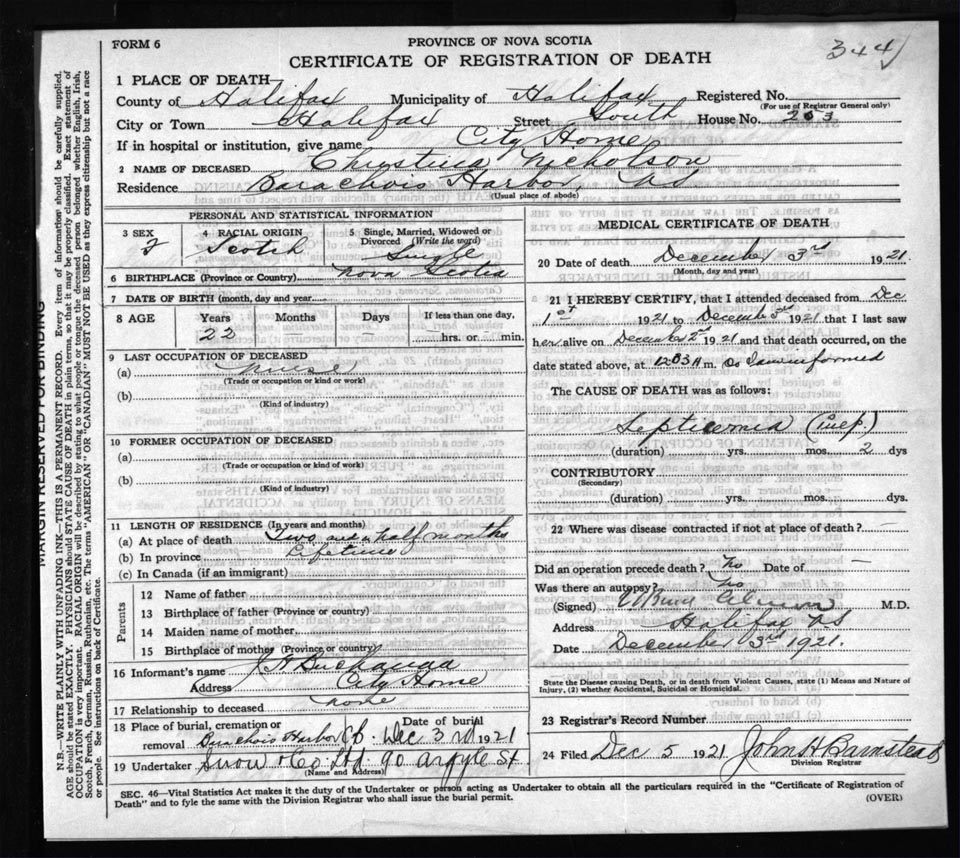 FORM 6
PROVINCE OF NOVA SCOTIA
CERTIFICATE OF REGISTRATION OF DEATH
344
1 PLACE OF DEATH
County of Halifax Municipality of Halifax Registered No.
(For use of Registrar General only)
City or Town Halifax Street South House No. 203
If in hospital or institution, give name City Home
2 NAME OF DECEASED Christina Nicholson
Residence Barachois Harbor, NS
(Usual place of abode)
PERSONAL AND STATISTICAL INFORMATION
3 SEX F
4 RACIAL ORIGIN Scotch
5 Single, Married, Widowed or Divorced (Write the word) Single
6 BIRTHPLACE (Province or Country) Nova Scotia
7 DATE OF BIRTH (month, day and year)
8 AGE Years Months Days If less than one day,
22 hrs. or min.
9 LAST OCCUPATION OF DECEASED
(a) Nurse
(Trade or occupation or kind or work)
(b)
(Kind of industry)
10 FORMER OCCUPATION OF DECEASED
(a)
(Trade or occupation or kind of work)
(b)
(Kind of industry)
11 LENGTH OF RESIDENCE (In years and months)
(a) At place of death Two and a half months
(b) In province Lifetime
(c) In Canada (if an immigrant)
Parents
12 Name of father
13 Birthplace of father (Province or country)
14 Maiden name of mother
15 Birthplace of mother (Province or country)
16 Informant's name
Address City Home
17 Relationship to deceased none
18 Place of burial, cremation or removal Barachois Harbor CB. Date of burial Dec 3rd 1921
19 Undertaker Snow & Co Ltd 90 Argyle St
(Name and Address)
MEDICAL CERTIFICATE OF DEATH
20 Date of death December 3rd 1921
(Month, day and year)
21 I HEREBY CERTIFY, that I attended deceased from Dec
1st 1921 to December 3rd 1921 that I last saw
her alive on December 2nd 1921 and that death occurred, on the
date stated above, at 12.03 A m. as I am informed
The CAUSE OF DEATH was as follows:
Septicemia
(duration) yrs. mos. 2 dys
CONTRIBUTORY
(Secondary)
(duration) yrs. mos. dys.
22 Where was disease contracted if not at place of death? —
Did an operation precede death? No Date of —
Was there an autopsy? No
(Signed) M.D.
Address Halifax NS
Date December 3rd 1921.
State the Disease causing Death, or in death from Violent Causes, state (1) Means and Nature of Injury, (2) whether Accidental, Suicidal or Homicidal.
23 Registrar's Record Number
24 Filed Dec 5 1921 John H Barnstead
Division Registrar
SEC. 46—Vital Statistics Act makes it the duty of the Undertaker or person acting as Undertaker to obtain all the particulars required in the "Certificate of Registration of
Death" and to fyle the same with the Division Registrar who shall issue the burial permit.
(OVER)
MARGIN RESERVED FOR BINDING
N.B.—WRITE PLAINLY WITH UNFADING INK—THIS IS A PERMANENT RECORD. Every item of information should be carefully supplied.
AGE should be stated EXACTLY. PHYSICIANS should STATE CAUSE OF DEATH in plain terms, so that it may be properly classified. Exact statement of
OCCUPATION is very important. RACIAL ORIGIN will be described by stating to what people or tongue the deceased person belonged whether English, Irish,
Scotch, French, German, Russian, Ruthenian, etc. The terms "AMERICAN" or "CANADIAN" MUST NOT BE USED as they express citizenship but not a race
or people. See instructions on back of Certificate.